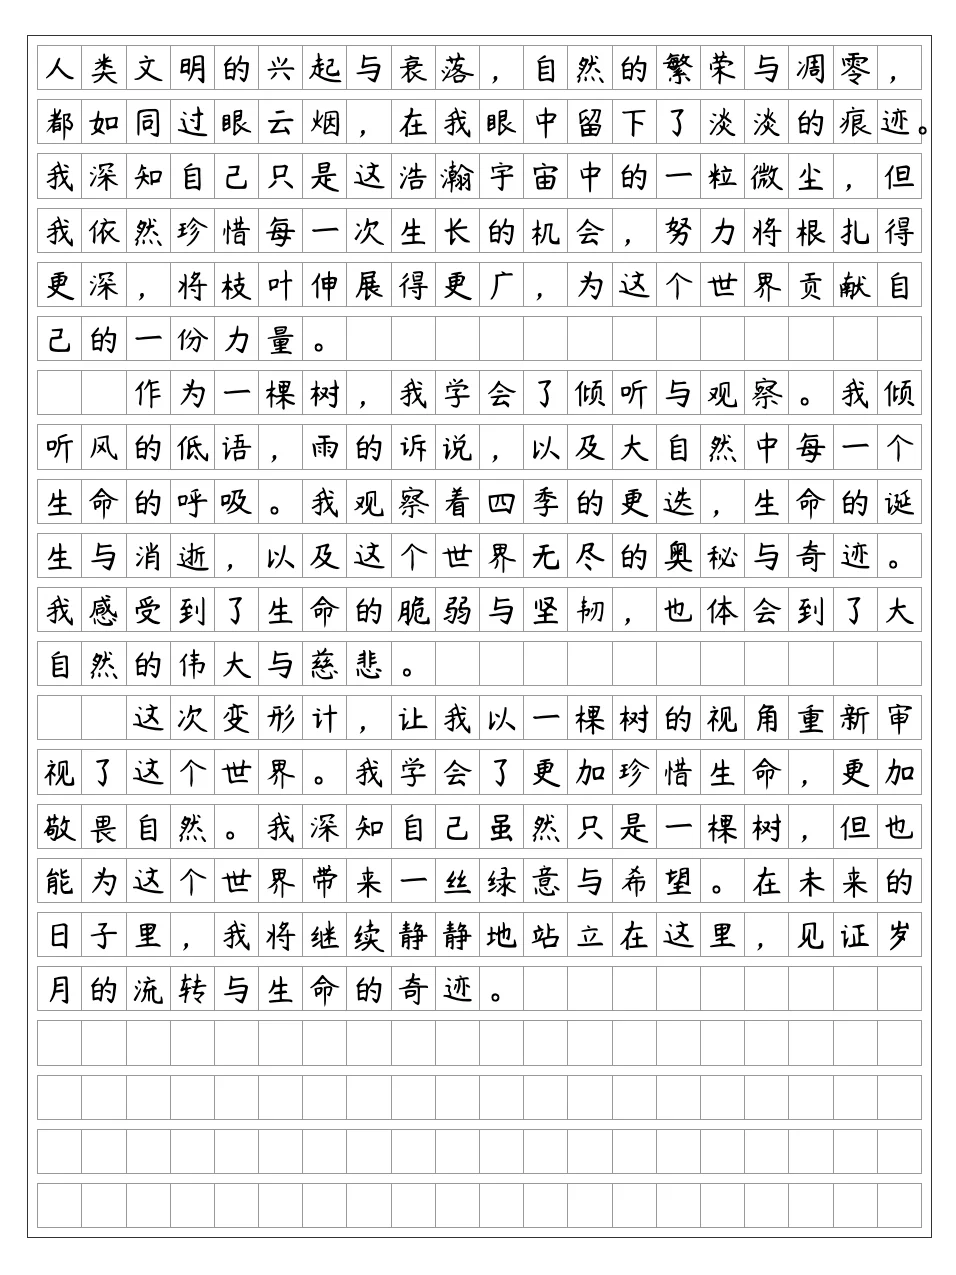 人类文明的兴起与衰落，自然的繁荣与凋零，
都如同过眼云烟，在我眼中留下了淡淡的痕迹。
我深知自己只是这浩瀚宇宙中的一粒微尘，但
我依然珍惜每一次生长的机会，努力将根扎得
更深，将枝叶伸展得更广，为这个世界贡献自
己的一份力量。
作为一棵树，我学会了倾听与观察。我倾
听风的低语，雨的诉说，以及大自然中每一个
生命的呼吸。我观察着四季的更迭，生命的诞
生与消逝，以及这个世界无尽的奥秘与奇迹。
我感受到了生命的脆弱与坚韧，也体会到了大
自然的伟大与慈悲。
这次变形计，让我以一棵树的视角重新审
视了这个世界。我学会了更加珍惜生命，更加
敬畏自然。我深知自己虽然只是一棵树，但也
能为这个世界带来一丝绿意与希望。在未来的
日子里，我将继续静静地站立在这里，见证岁
月的流转与生命的奇迹。